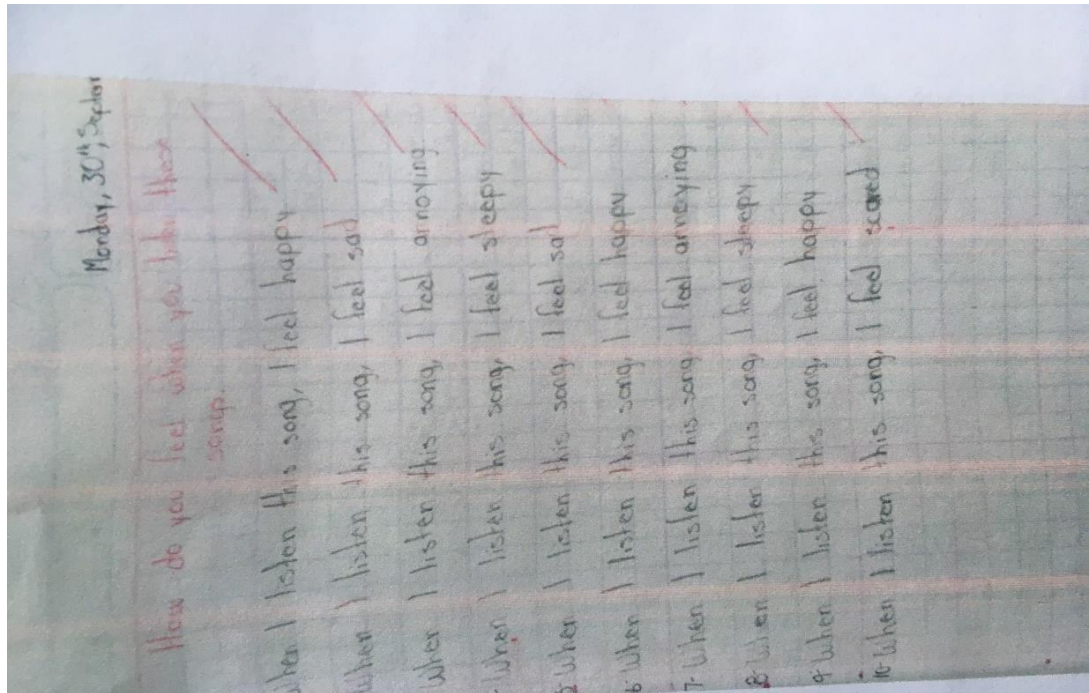 Monday, 30th, Septem
How do you feel when you listen these
songs.
When I listen this song, I feel happy
When I listen this song, I feel sad
When I listen this song, I feel annoying
When I listen this song, I feel sleepy
5 When I listen this song, I feel sad
6- When I listen this song, I feel happy
7- When I listen this song, I feel annoying
8- When I listen this song, I feel sleepy
9- When I listen this song, I feel happy
10- When I listen this song, I feel scared